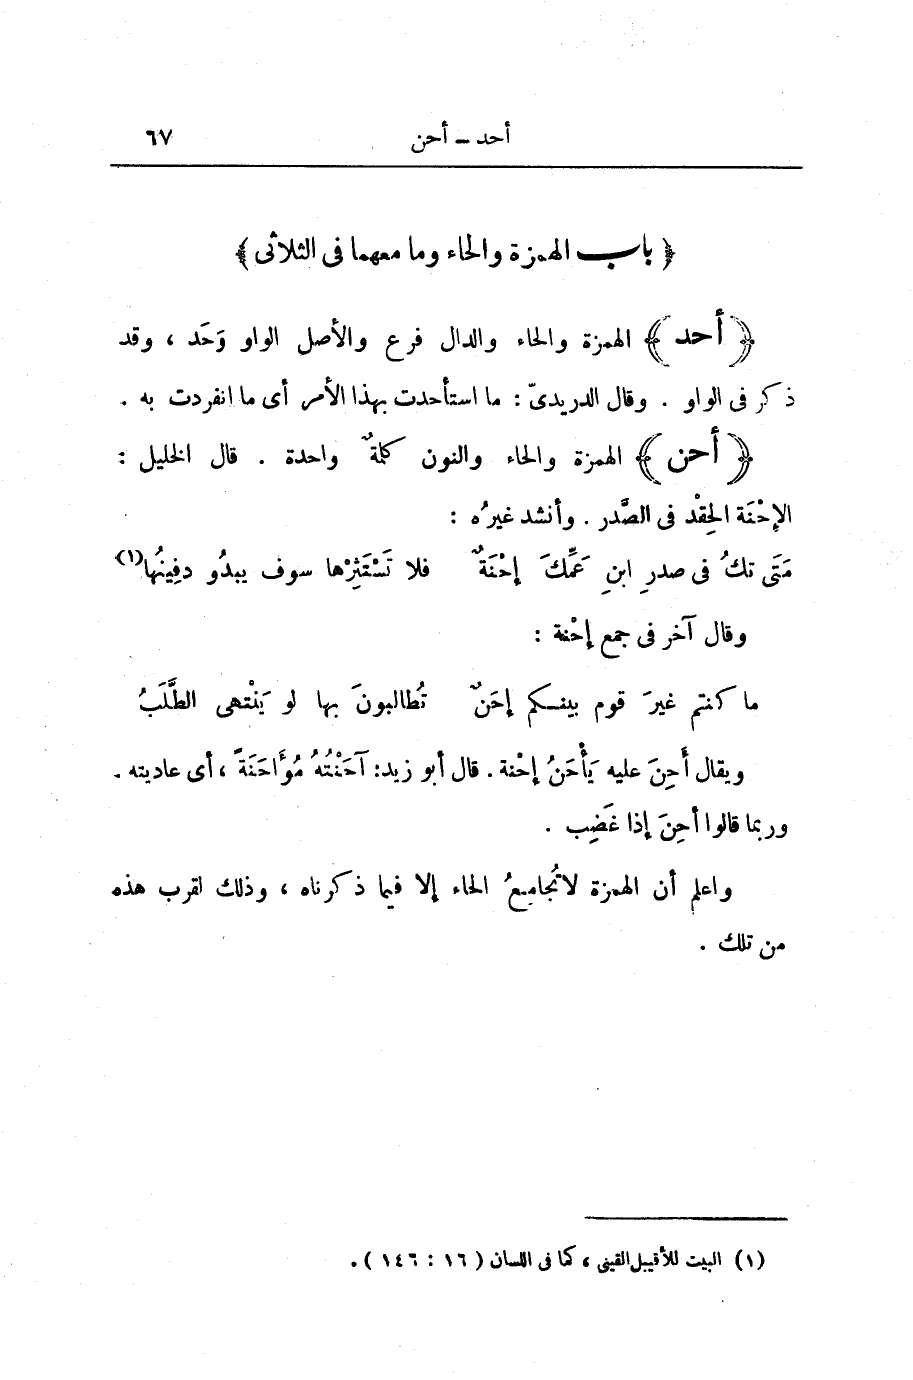 أحد – أحن ٦٧
﴿ باب الهمزة والحاء وما معهما فى الثلاثى ﴾
﴿ أحد ﴾ الهمزة والحاء والدال فرع والأصل الواو وَحَد ، وقد
ذكر فى الواو . وقال الدريدىّ : ما استأحدت بهذا الأمر أى ما انفردت به .
﴿ أحن ﴾ الهمزة والحاء والنون كلمةٌ واحدة . قال الخليل :
الإحْنَة الحِقْد فى الصَّدر . وأنشد غيرُه :
مَتَى تكُ فى صدرِ ابنِ عَمِّكَ إحْنَةٌ فلا تَسْتَثِرْها سوف يبدُو دفِينُها(١)
وقال آخر فى جمع إحْنة :
ما كنتم غيرَ قوم بينكم إحَنٌ تُطالبونَ بها لو يَنْتهى الطَّلَبُ
ويقال أَحِنَ عليه يَأْحَنُ إحْنة . قال أبو زيد: آحَنْتُهُ مُؤَاحَنَةً ، أى عاديته .
وربما قالوا أحِنَ إذا غَضِب .
واعلم أن الهمزة لا تُجامِعُ الحاء إلا فيما ذكرناه ، وذلك لقرب هذه
من تلك .
(١) البيت للأقيبل القينى ، كما فى اللسان ( ١٦ : ١٤٦ ) .